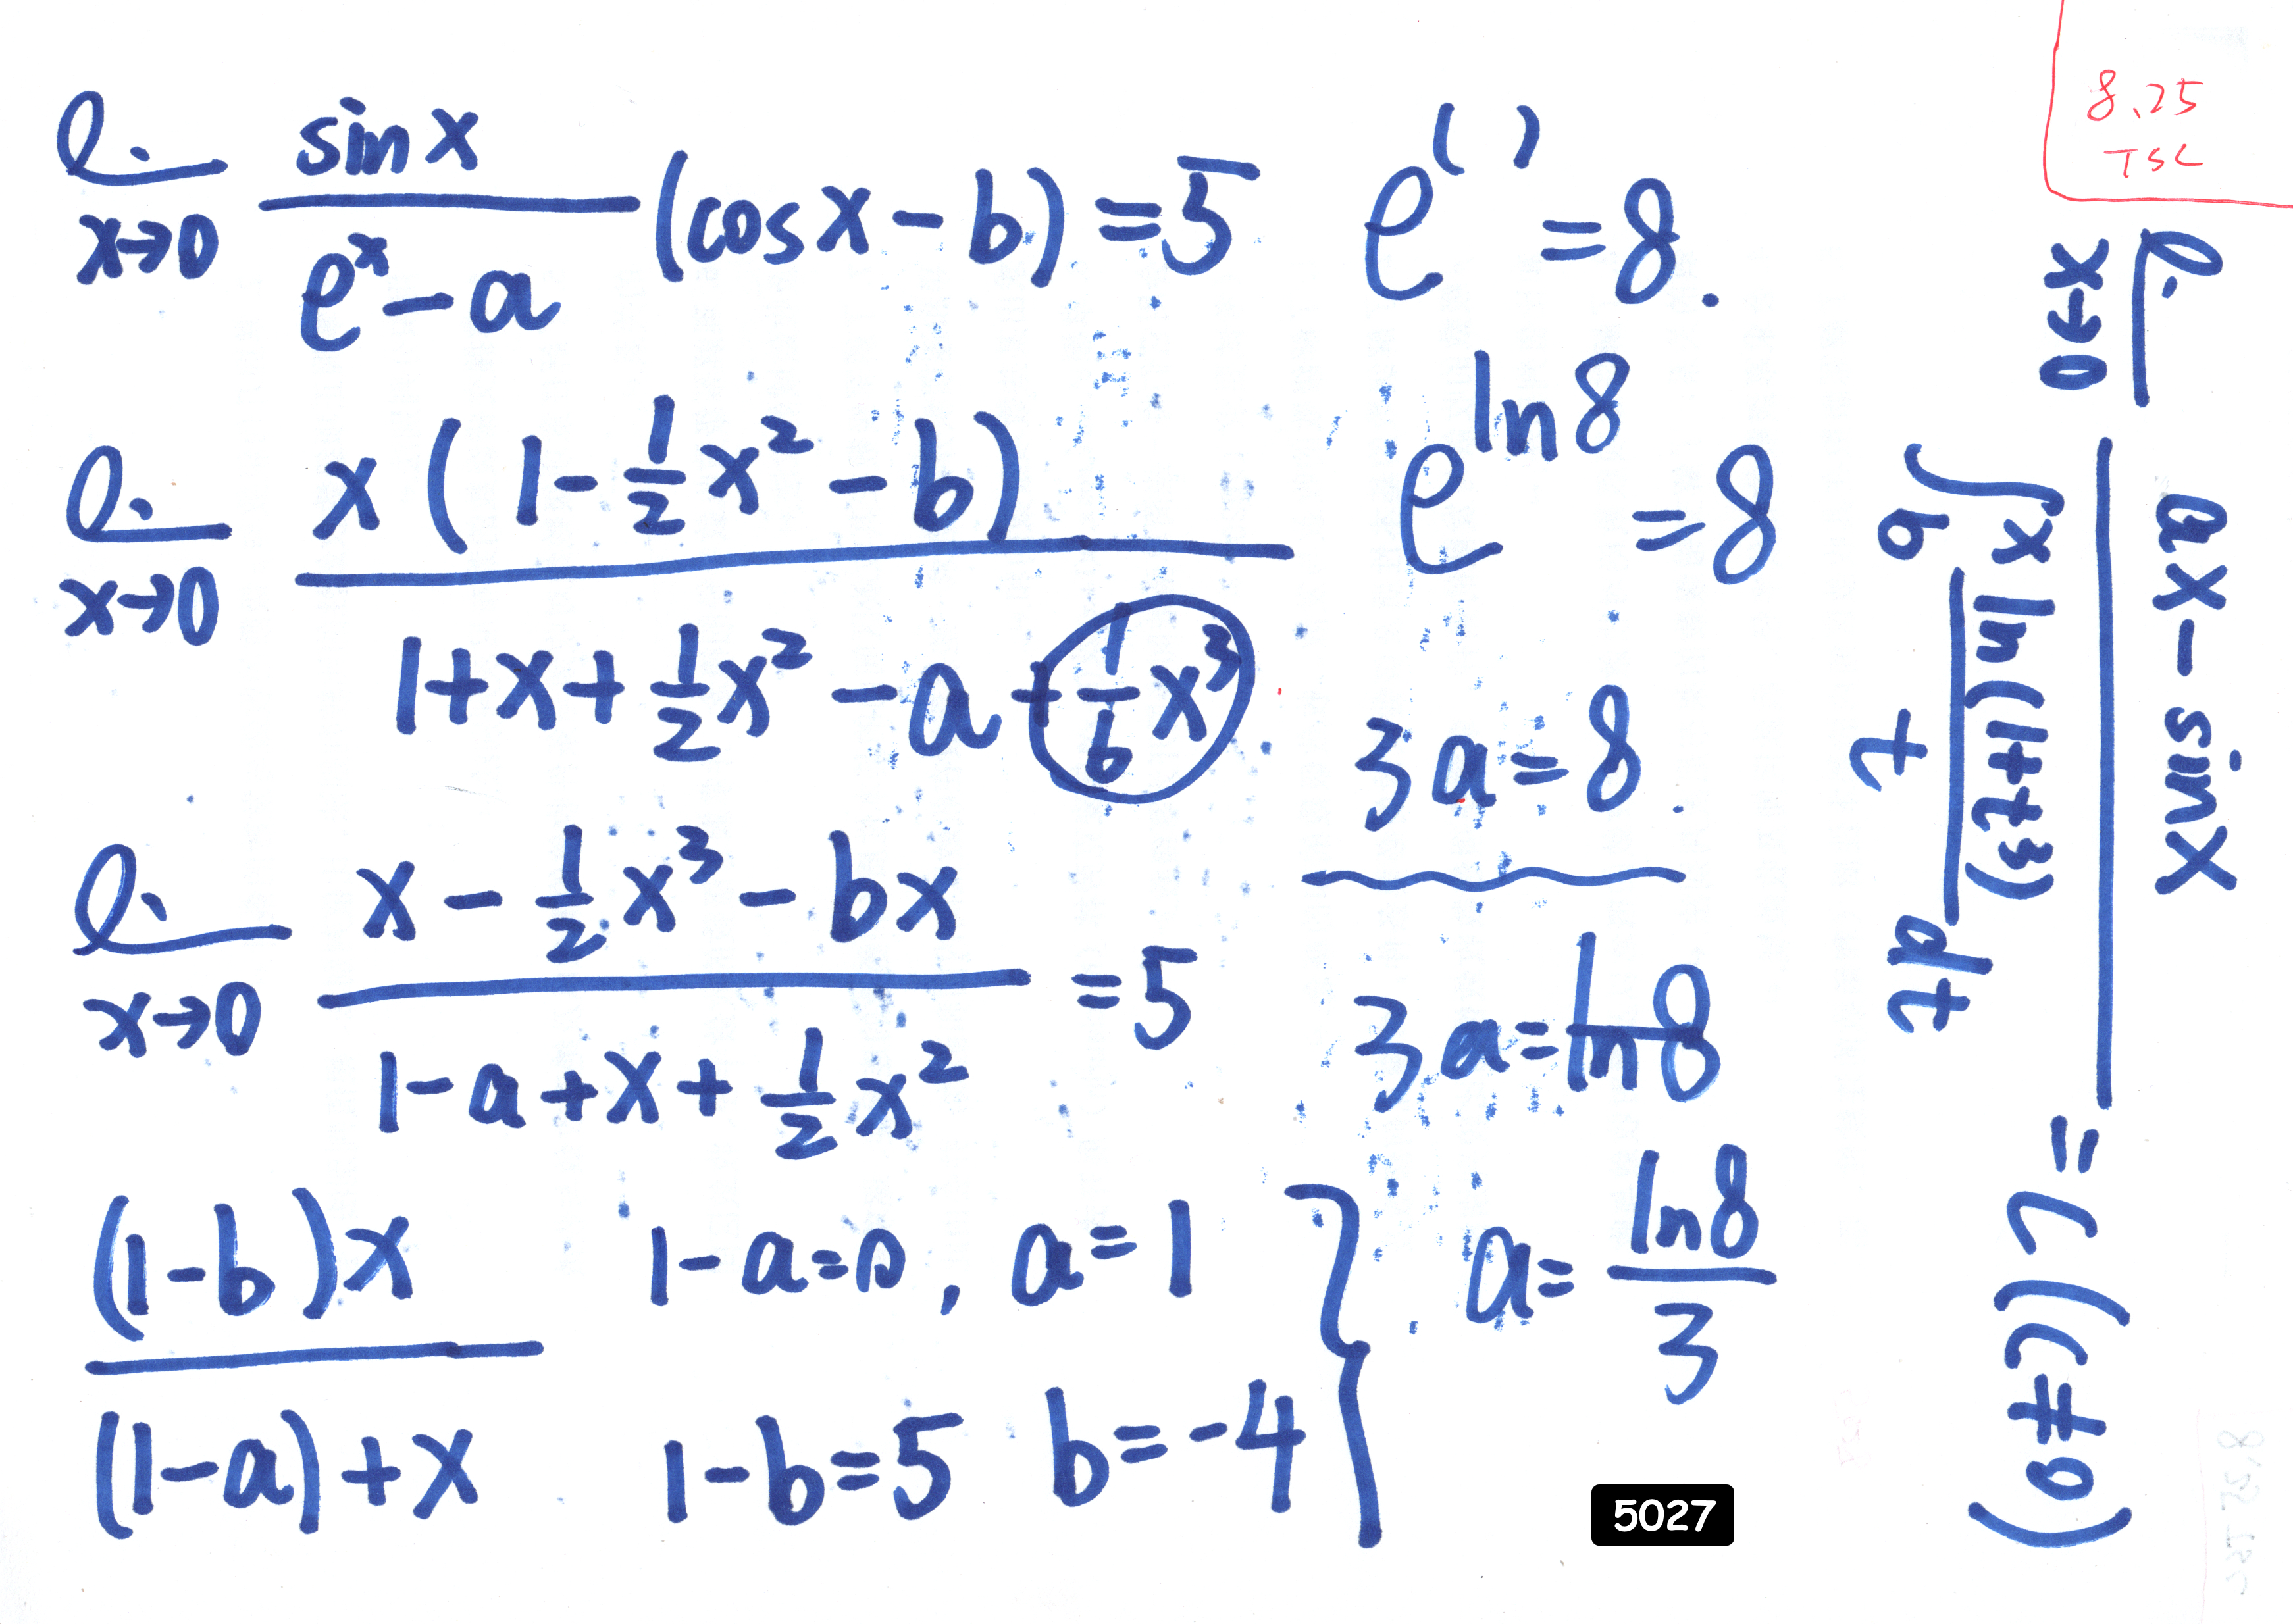 8.25
TSC
lim x→0 sin x / (eˣ - a) (cos x - b) = 5
lim x→0 x(1 - 1/2 x² - b) / (1 + x + 1/2 x² - a + 1/6 x³)
lim x→0 (x - 1/2 x³ - bx) / (1 - a + x + 1/2 x²) = 5
(1-b)x / ((1-a) + x)
1 - a = 0, a = 1
1 - b = 5 b = -4
e^( ) = 8.
e^(ln 8) = 8
3a = 8.
3a = ln 8
a = ln 8 / 3
lim x→0 (ax - sin x) / (∫_b^x ln(1+t³)/t dt) = C (C≠0)
5027